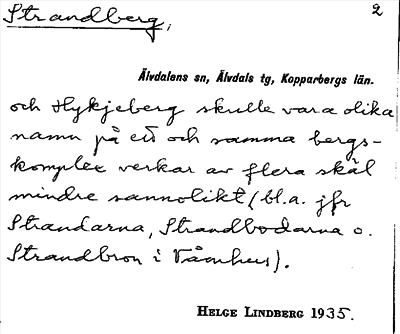 Strandberg, 2
Älvdalens sn, Älvdals tg, Kopparbergs län.
och Hykjeberg skulle vara olika
namn på ett och samma bergs-
komplex verkar av flera skäl
mindre sannolikt (bl.a. jfr
Strandarna, Strandbodarna o.
Strandbron i Våmhus).
HELGE LINDBERG 1935.